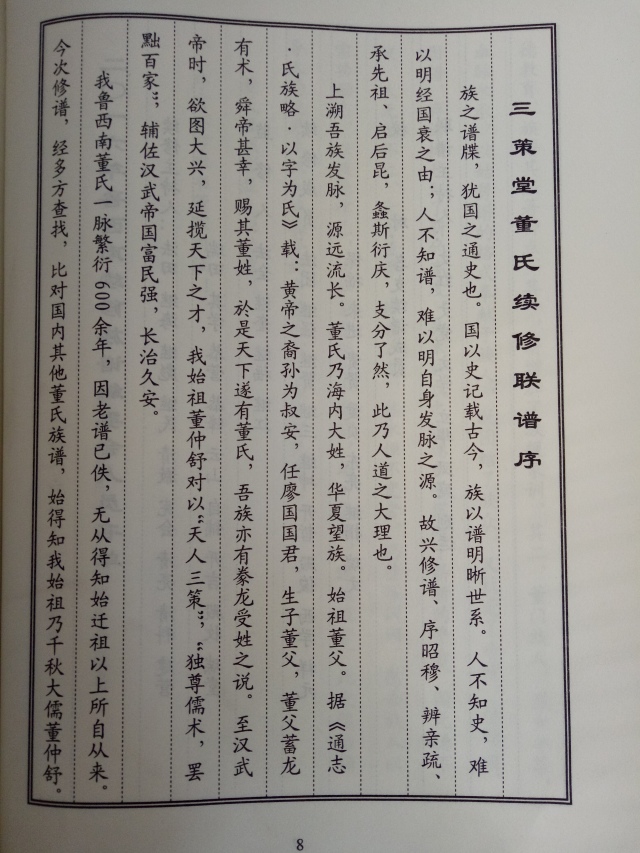 三策堂董氏续修联谱序
族之谱牒，犹国之通史也。国以史记载古今，族以谱明晰世系。人不知史，难
以明经国衰之由；人不知谱，难以明自身发脉之源。故兴修谱、序昭穆、辨亲疏、
承先祖、启后昆，螽斯衍庆，支分了然，此乃人道之大理也。
上溯吾族发脉，源远流长。董氏乃海内大姓，华夏望族。始祖董父。据《通志
·氏族略·以字为氏》载：黄帝之裔孙为叔安，任廖国国君，生子董父，董父蓄龙
有术，舜帝甚幸，赐其董姓，於是天下遂有董氏，吾族亦有豢龙受姓之说。至汉武
帝时，欲图大兴，延揽天下之才，我始祖董仲舒对以“天人三策”，“独尊儒术，罢
黜百家”，辅佐汉武帝国富民强，长治久安。
我鲁西南董氏一脉繁衍600余年，因老谱已佚，无从得知始迁祖以上所自从来。
今次修谱，经多方查找，比对国内其他董氏族谱，始得知我始祖乃千秋大儒董仲舒。
8